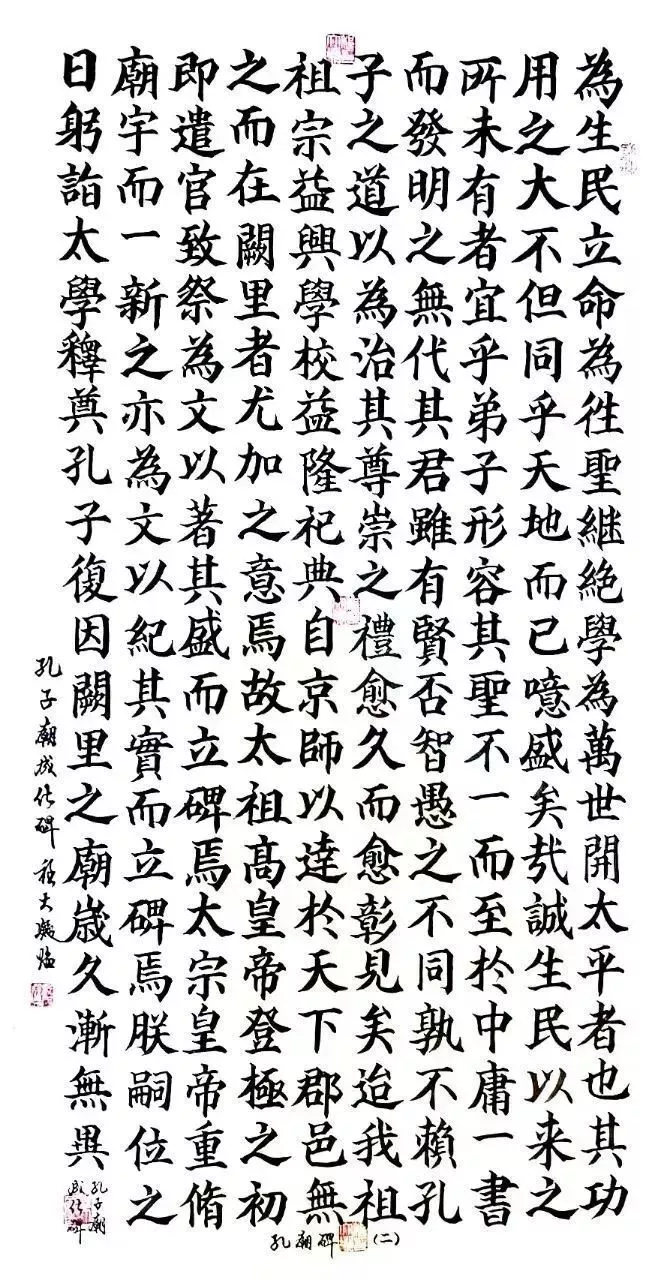 為生民立命為徃聖継絶學為萬世開太平者也其功
用之大不但同乎天地而已噫盛矣㢤誠生民以来之
所未有者宜乎弟子形容其聖不一而至於中庸一書
而發明之無代其君雖有賢否智愚之不同孰不賴孔
子之道以為治其尊崇之禮愈久而愈彰見矣迨我祖
祖宗益興學校益隆祀典自京師以逹於天下郡邑無
之而在闕里者尤加之意焉故太祖髙皇帝登極之初
即遣官致祭為文以著其盛而立碑焉太宗皇帝重脩
廟宇而一新之亦為文以紀其實而立碑焉朕嗣位之
日躬詣太學釋奠孔子復因闕里之廟歲久漸無異
孔子廟成化碑 大凝臨
孔子廟
成化碑
孔廟碑(二)